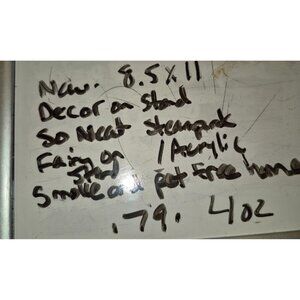 New. 8.5x11
Decor on stand
So Neat Steampunk
Fairy on / Acrylic
Stand
Smoke and pet free home
.79. 4oz